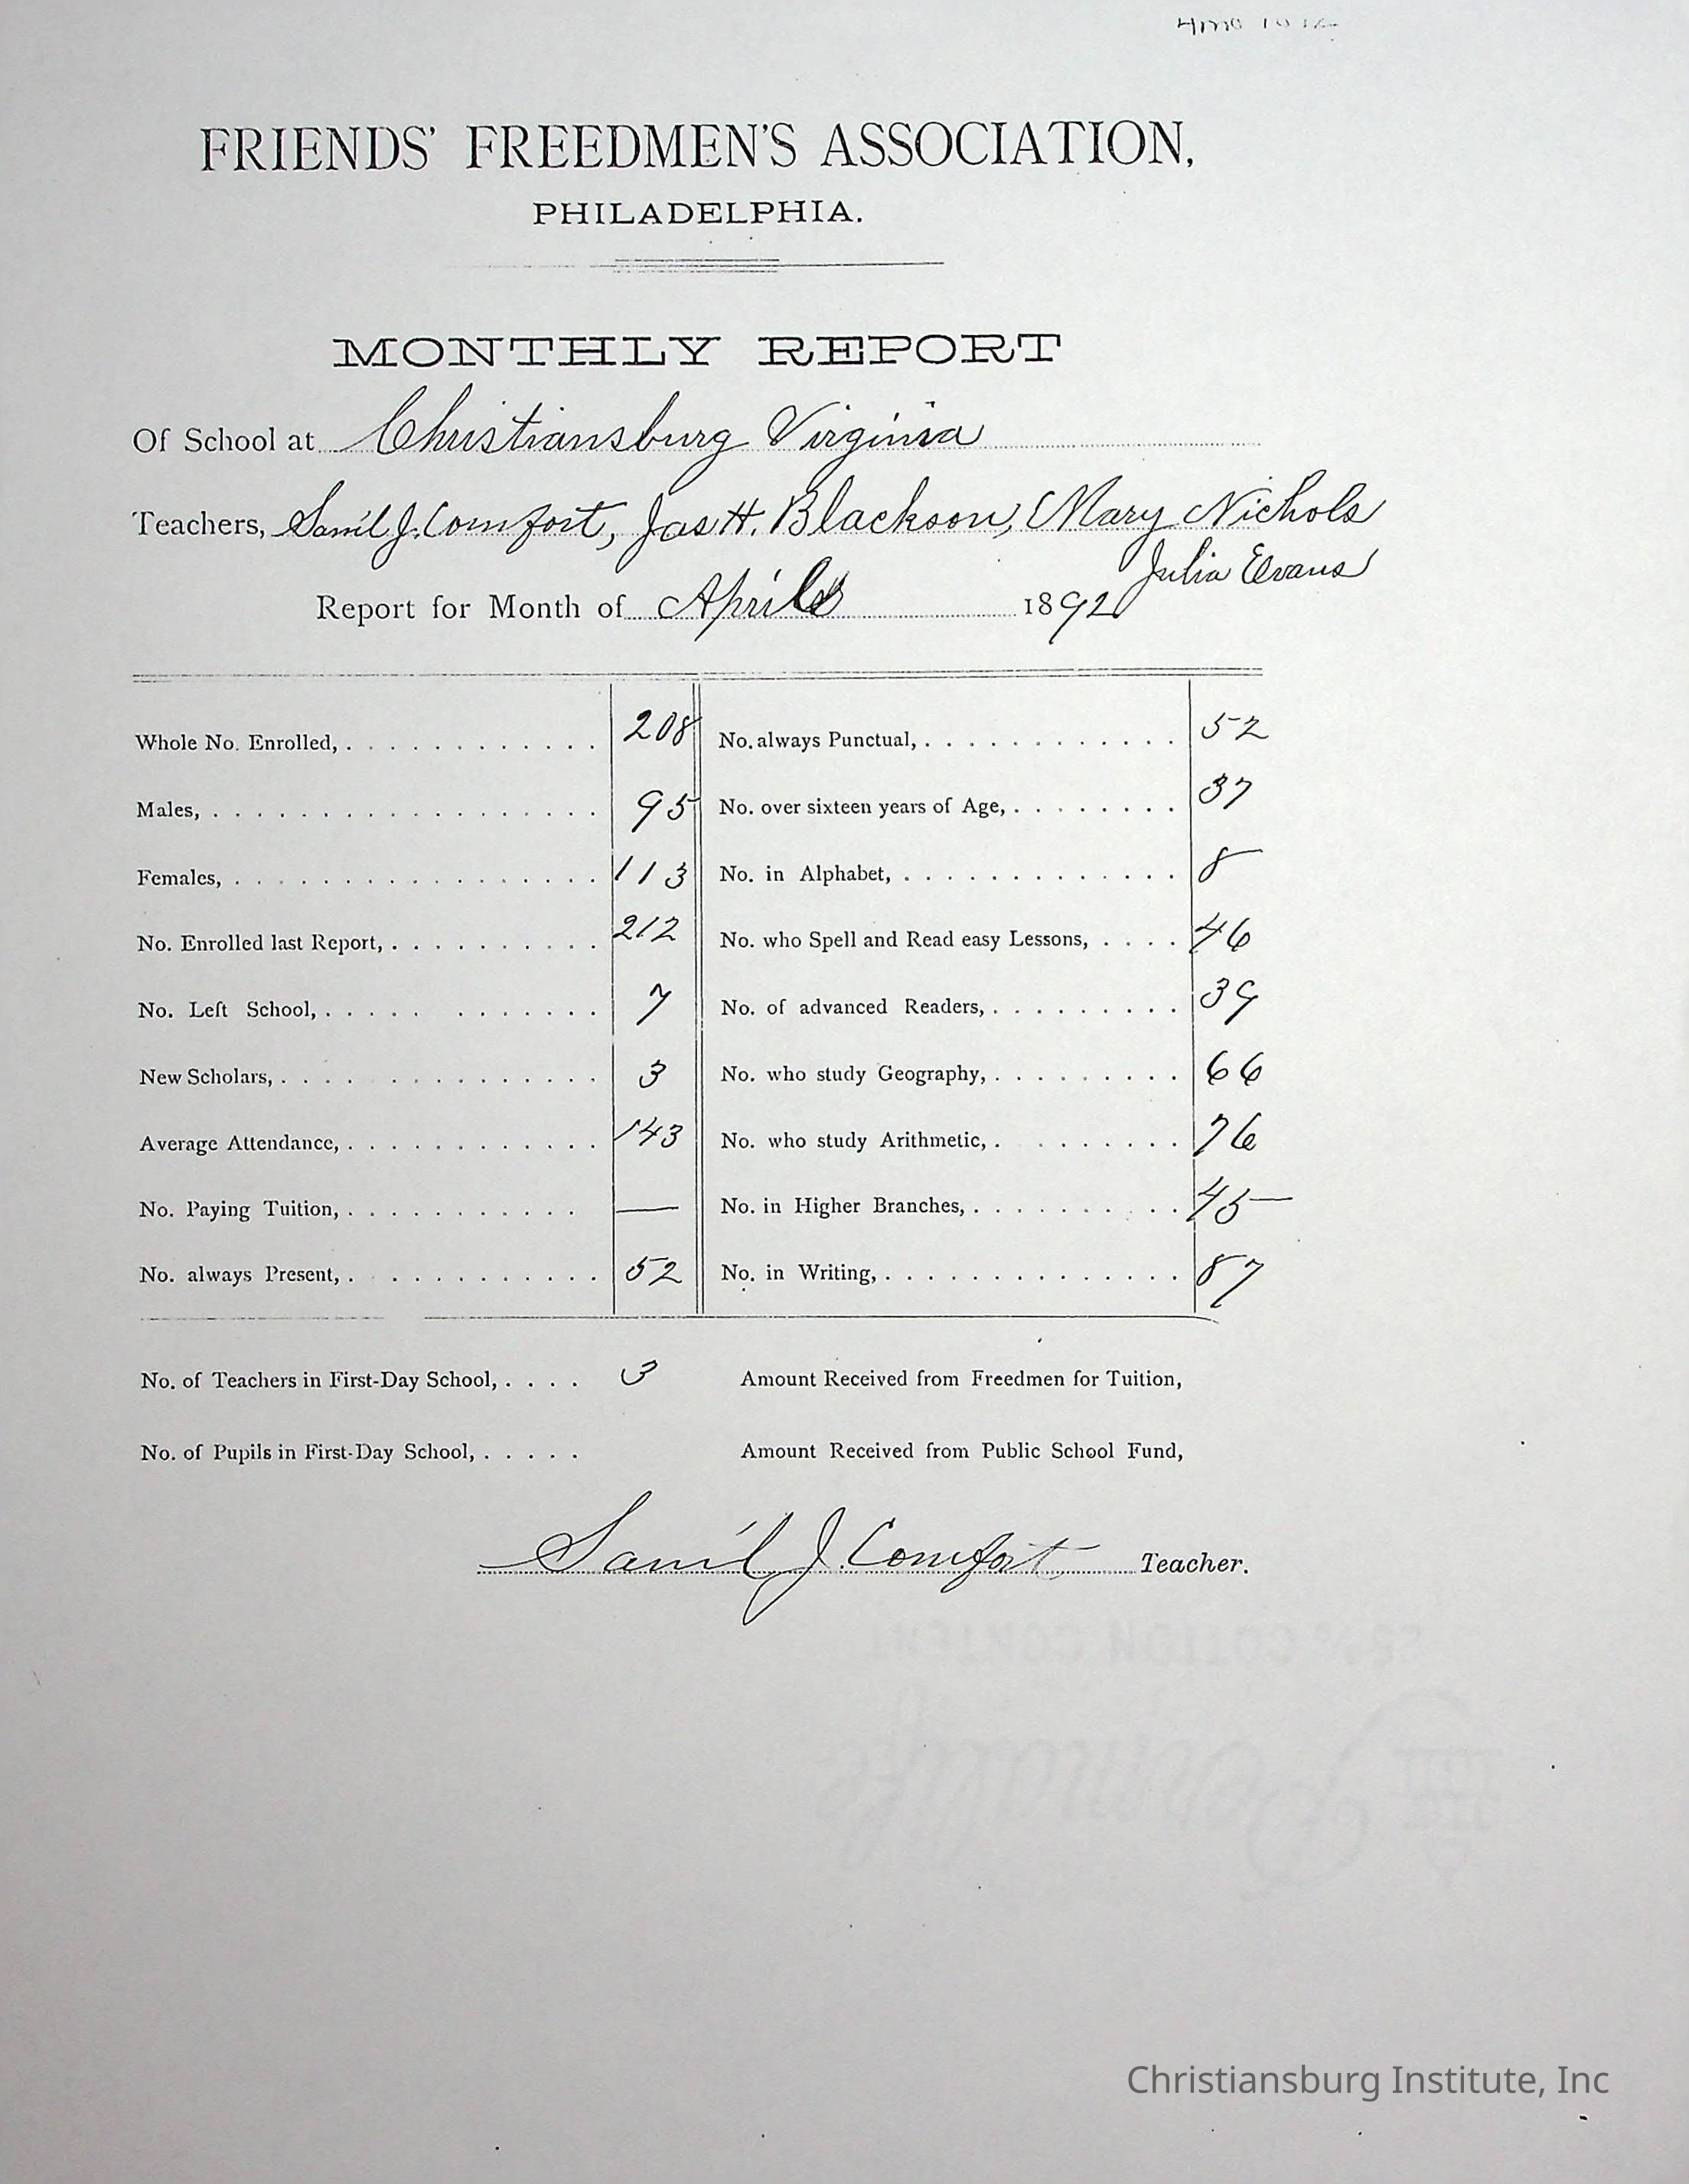 FRIENDS' FREEDMEN'S ASSOCIATION,
PHILADELPHIA.
MONTHLY REPORT
Of School at Christiansburg Virginia
Teachers, Sam'l J. Comfort, Jas H. Blackson, Mary Nichols
Julia Evans
Report for Month of April 1892
Whole No. Enrolled, 208 No. always Punctual, 52
Males, 95 No. over sixteen years of Age, 37
Females, 113 No. in Alphabet, 8
No. Enrolled last Report, 212 No. who Spell and Read easy Lessons, 46
No. Left School, 7 No. of advanced Readers, 39
New Scholars, 3 No. who study Geography, 66
Average Attendance, 143 No. who study Arithmetic, 76
No. Paying Tuition, — No. in Higher Branches, 45
No. always Present, 52 No. in Writing, 87
No. of Teachers in First-Day School, 3 Amount Received from Freedmen for Tuition,
No. of Pupils in First-Day School, Amount Received from Public School Fund,
Sam'l J. Comfort Teacher.
COTTON CONTENT
Christiansburg Institute, Inc